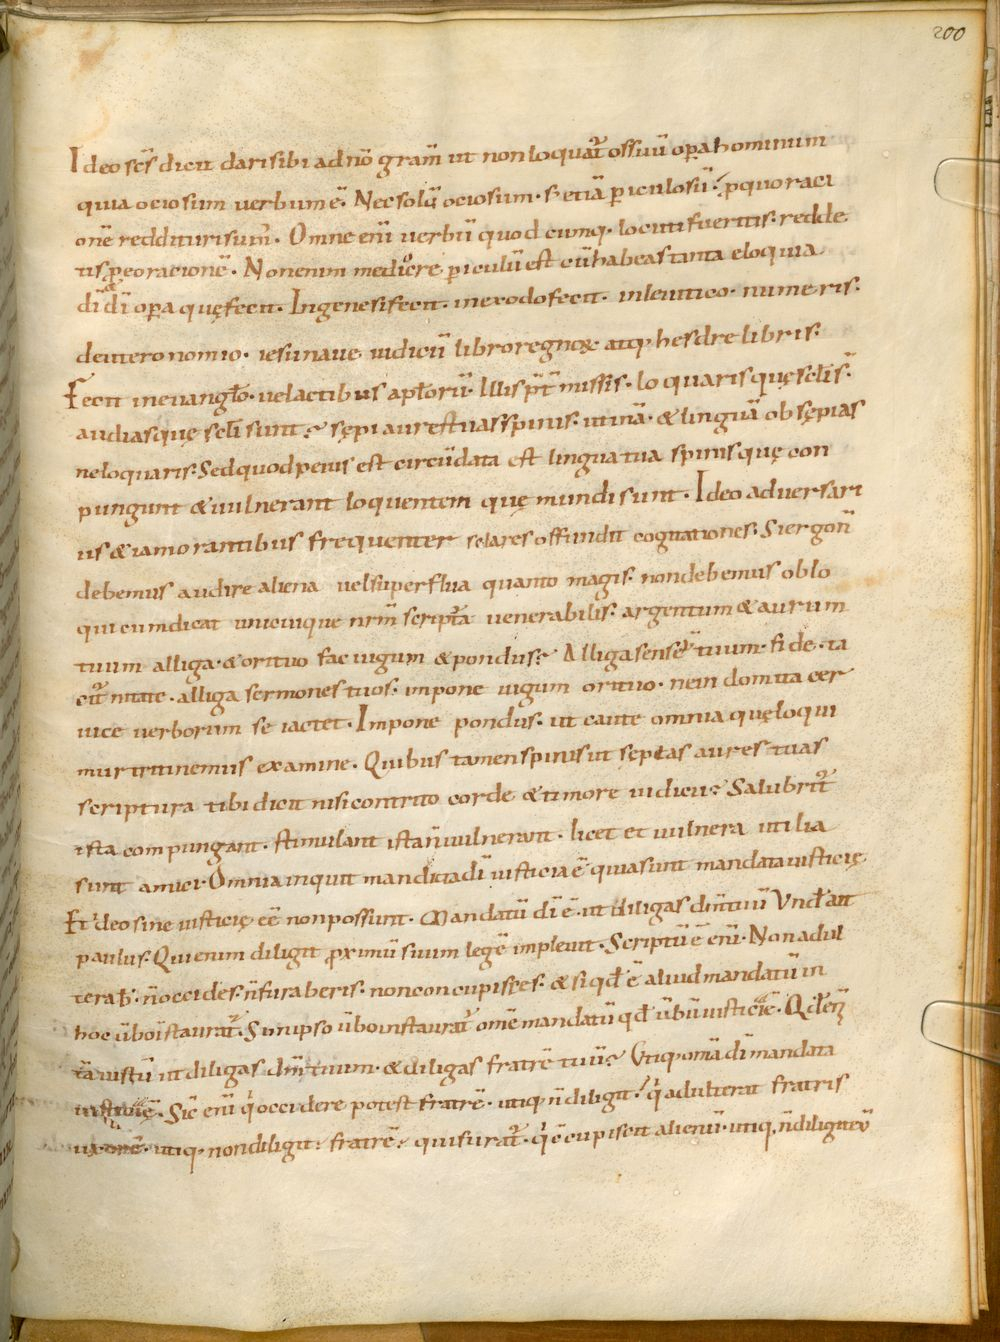 200
Ideo scs̄ dicit dari sibi ad nō gram̄ ut non loquat̄ os suū opera hominum
quia ociosum verbum ē. Nec solū ociosum. s; etiā periculosū. pro quo raci
onē reddituri sum̄. Omne eni verbū quodcumq. locuti fueritis. redde
tis p eo racionē. Non enim mediocre periculū est cū habeas tanta eloquia
di di opera quę fecit. In genesi fecit. in exodo fecit. in levitico. numeris.
deuteronomio. iesu naue. iudicū libro regnoꝝ atq; hesdre libris.
Fecit in evanglo. vel actibus aplorū. Illis p̄t missis. loquaris quę scłi s̄.
audias que scłi sunt; sępi aures tuas spinis. ut inā. & linguā obsępias
ne loquaris. Sed quod peius est circūdata est lingua tua spinis quę con
pungunt & vulnerant loquentem quę mundi sunt. Ideo adversari
us & iam orantibus frequenter seculares offundit cogitationes. Si ergo ñ
debemus audire aliena vel superflua quanto magis. non debemus oblo
qui cum dicat unicuique nrm̄ scriptā venerabilis. argentum & aurum
tuum alliga. & ori tuo fac iugum & pondus; Alliga sensū tuum. fide. ta
citnitate. alliga sermones tuos. impone iugum ori tuo. ne indomita cer
vice verborum se iactet. Impone pondus. ut caute omnia quę loqui
mur trutinemus examine. Quibus tamen spinis ut sepias aures tuas
scriptura tibi dicit nisi contrito corde & timore iudicii; Salubrit̄
ista compungant. stimulant ista ñ vulnerant. licet et vulnera utilia
sunt amici. Omnia inquit mandata di iusticia ē quia sunt mandata iusticię.
Et ideo sine iusticię eē non possunt. Mandatū di ē. ut diligas dm̄ tuū Unde ait
paulus. Qui enim diligit proximū suum legē implevit. Scriptū ē eni. Non adul
terab̄. ñ occides. ñ furaberis. non concupisces. & si qd̄ ē aliud mandatū in
hoc ūbo instaurat̄. Si in ipso ūbo instaurat̄ omē mandatū qd̄ ūbū iusticię ē. Qd̄ eni
tā iustū ut diligas dm̄ tuum. & diligas fratrē tuū; Utiq. omā di mandata
iusticię. Sic eni q̇ occidere potest fratrē. utiq; ñ diligit. q̇ adulterat fratris
uxorē. utiq; non diligit fratrē. qui furat̄. q̇ ccupiscit alienū. utiq; ñ diligit eū